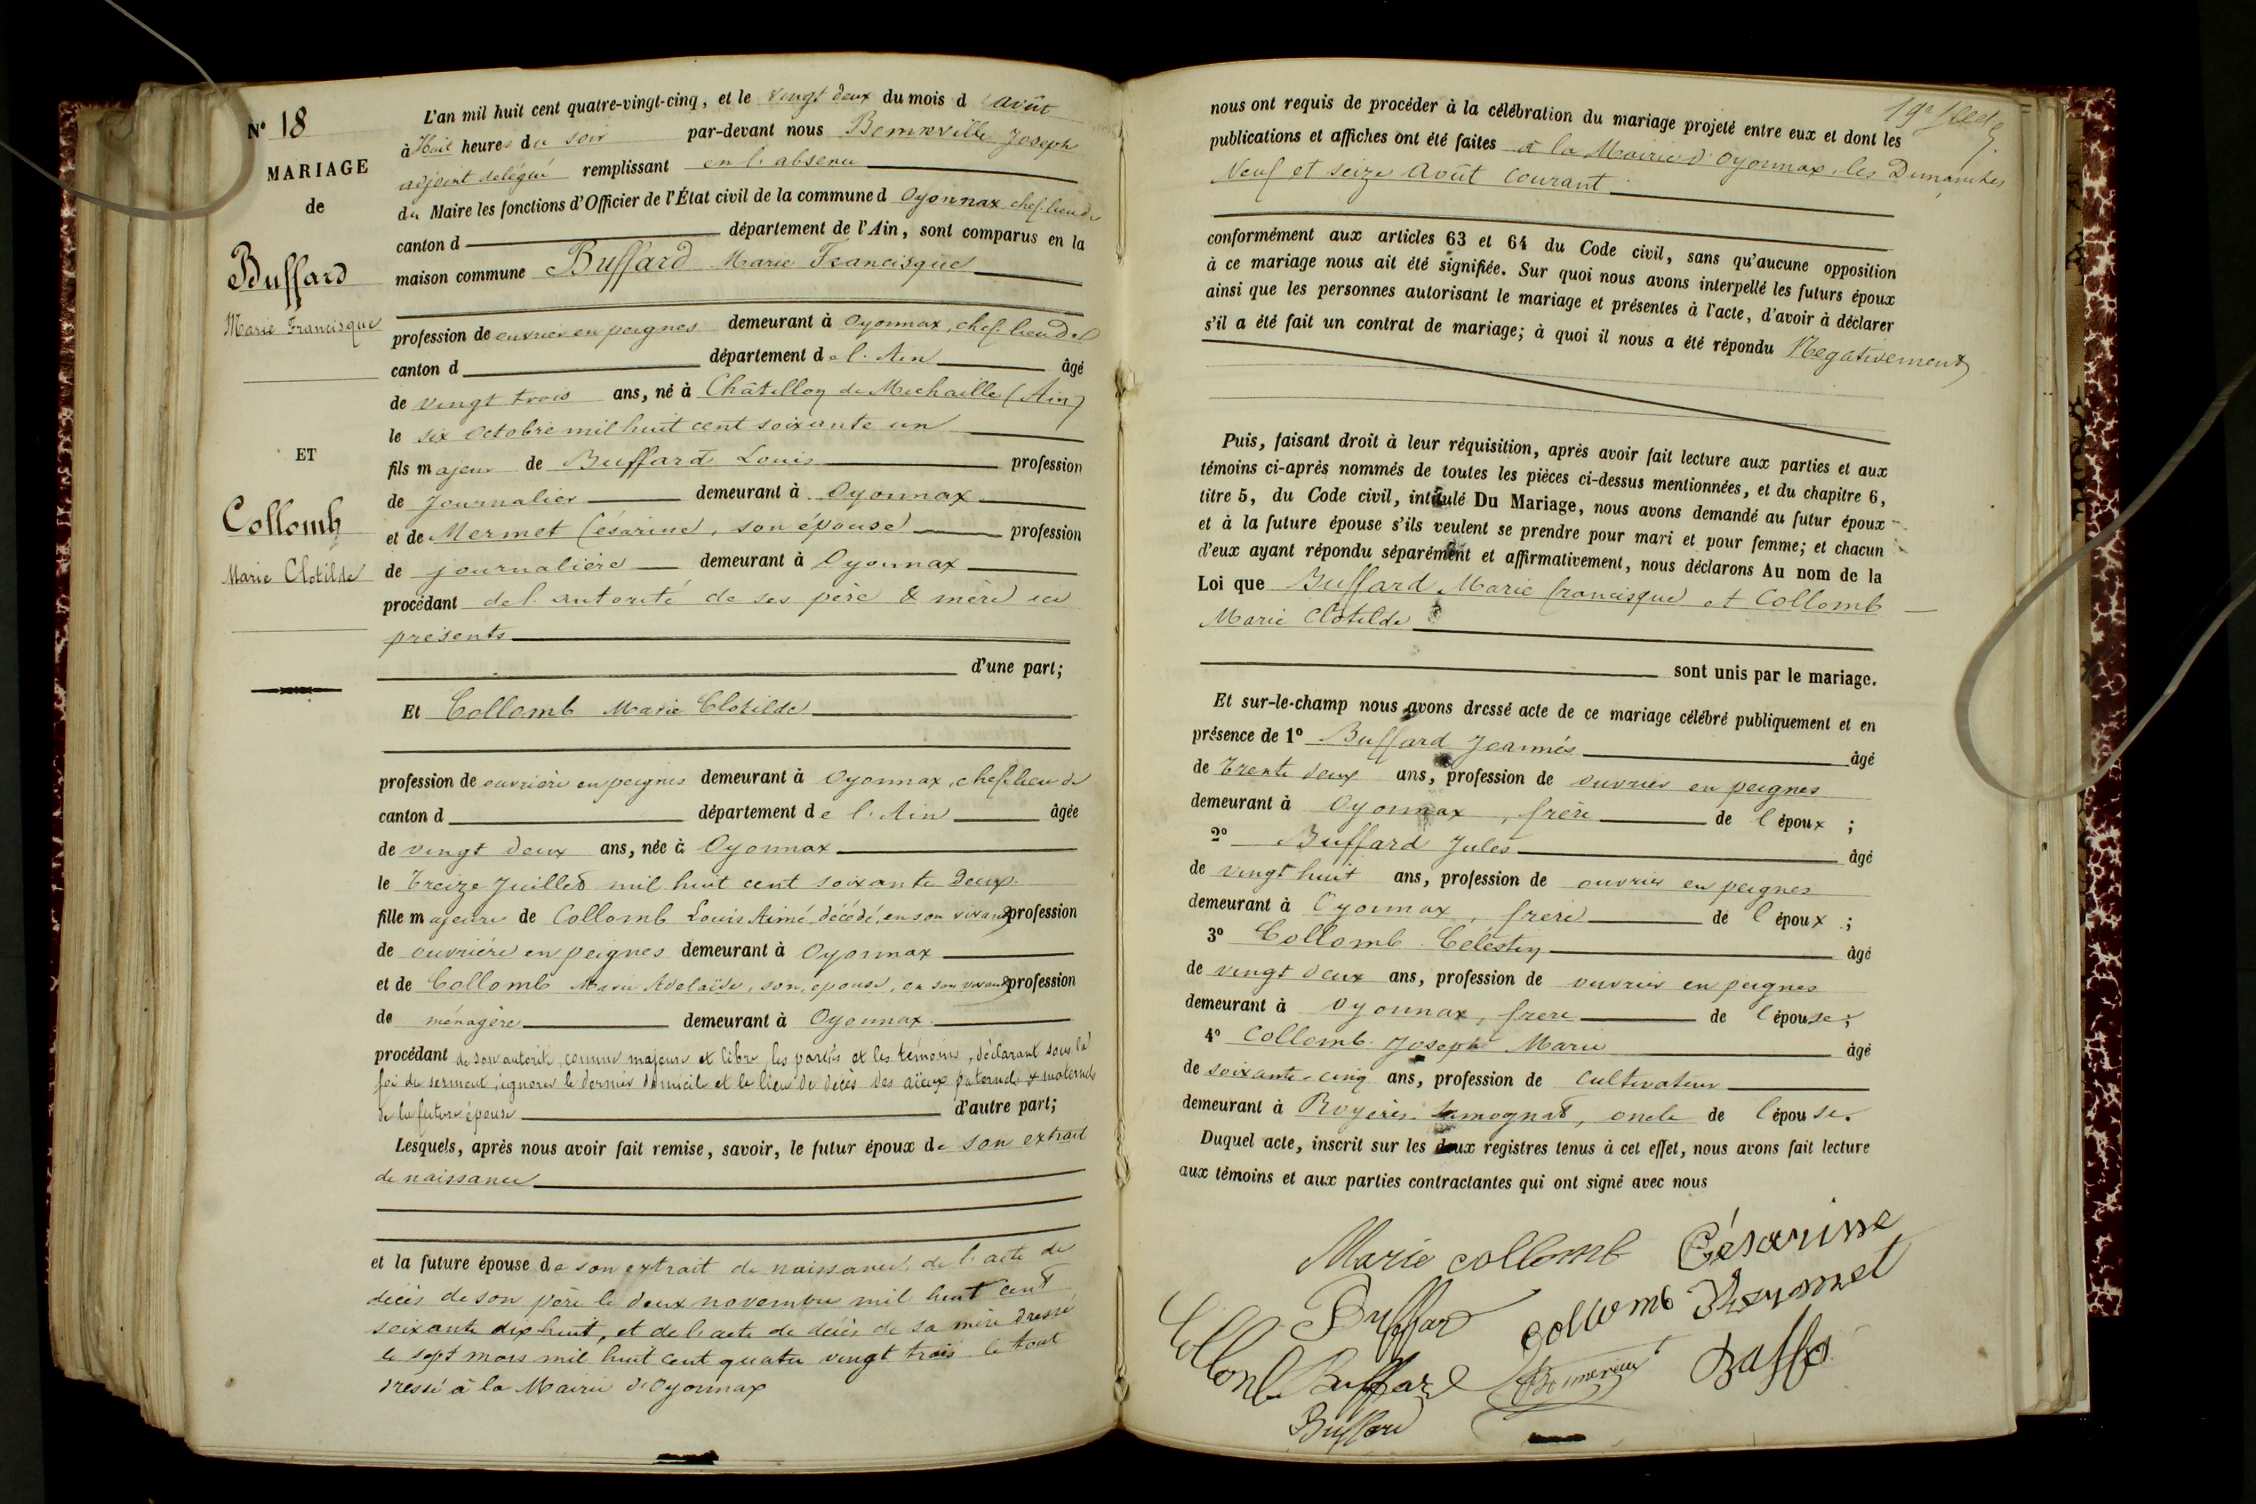 N° 18
MARIAGE
de
Buffard
Marie Francisque
ET
Collomb
Marie Clotilde
L'an mil huit cent quatre-vingt-cinq, et le vingt deux du mois d août
à Huit heures du soir par-devant nous Joseph
adjoint délégué remplissant en l'absence
du Maire les fonctions d'Officier de l'État civil de la commune d Oyonnax chef-lieu de
canton d département de l'Ain, sont comparus en la
maison commune Buffard Marie Francisque
profession de ouvrier en peignes demeurant à Oyonnax, chef-lieu de
canton d département de l'Ain âgé
de vingt trois ans, né à Châtillon de Michaille (Ain)
le six octobre mil huit cent soixante un
fils majeur de Buffard Louis profession
de journalier demeurant à Oyonnax
et de Mermet Césarine, son épouse profession
de journalière demeurant à Oyonnax
procédant de l'autorité de ses père & mère ici
présents
d'une part;
Et Collomb Marie Clotilde
profession de ouvrière en peignes demeurant à Oyonnax, chef-lieu de
canton d département de l'Ain âgée
de vingt deux ans, née à Oyonnax
le treize Juillet mil huit cent soixante deux
fille majeure de Collomb Louis Aimé, décédé, en son vivant profession
de ouvrière en peignes demeurant à Oyonnax
et de Collomb Marie Adelaïde, son épouse, en son vivant profession
de ménagère demeurant à Oyonnax
procédant de son autorité, comme majeure et libre, les parties et les témoins, déclarant sous la
foi du serment, ignorer le dernier domicile et le lieu de décès des aïeux paternels & maternels
de la future épouse d'autre part;
Lesquels, après nous avoir fait remise, savoir, le futur époux de son extrait
de naissance
et la future épouse de son extrait de naissance, de l'acte de
décès de son père le deux novembre mil huit cent
soixante dix huit, et de l'acte de décès de sa mère dressé
le sept mars mil huit cent quatre vingt trois le tout
dressé à la Mairie d'Oyonnax
nous ont requis de procéder à la célébration du mariage projeté entre eux et dont les
publications et affiches ont été faites à la Mairie d'Oyonnax, les Dimanches
Neuf et seize Août courant
conformément aux articles 63 et 64 du Code civil, sans qu'aucune opposition
à ce mariage nous ait été signifiée. Sur quoi nous avons interpellé les futurs époux
ainsi que les personnes autorisant le mariage et présentes à l'acte, d'avoir à déclarer
s'il a été fait un contrat de mariage; à quoi il nous a été répondu Négativement
Puis, faisant droit à leur réquisition, après avoir fait lecture aux parties et aux
témoins ci-après nommés de toutes les pièces ci-dessus mentionnées, et du chapitre 6,
titre 5, du Code civil, intitulé Du Mariage, nous avons demandé au futur époux
et à la future épouse s'ils veulent se prendre pour mari et pour femme; et chacun
d'eux ayant répondu séparément et affirmativement, nous déclarons Au nom de la
Loi que Buffard Marie francisque et Collomb
Marie Clotilde
sont unis par le mariage.
Et sur-le-champ nous avons dressé acte de ce mariage célébré publiquement et en
présence de 1° Buffard Joannès âgé
de trente deux ans, profession de ouvrier en peignes
demeurant à Oyonnax, frère de l époux;
2° Buffard Jules âgé
de vingt huit ans, profession de ouvrier en peignes
demeurant à Oyonnax, frère de l époux;
3° Collomb Célestin âgé
de vingt deux ans, profession de ouvrier en peignes
demeurant à Oyonnax, frère de l épouse;
4° Collomb Joseph Marie âgé
de soixante-cinq ans, profession de cultivateur
demeurant à Samognat, oncle de l épouse.
Duquel acte, inscrit sur les deux registres tenus à cet effet, nous avons fait lecture
aux témoins et aux parties contractantes qui ont signé avec nous
Marie collomb Césarinne
Buffard collomb
Collomb Buffard
Buffard